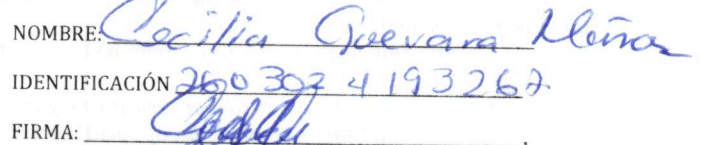 NOMBRE: Cecilia Guevara Muñoz
IDENTIFICACIÓN 260 302 4193262
FIRMA: